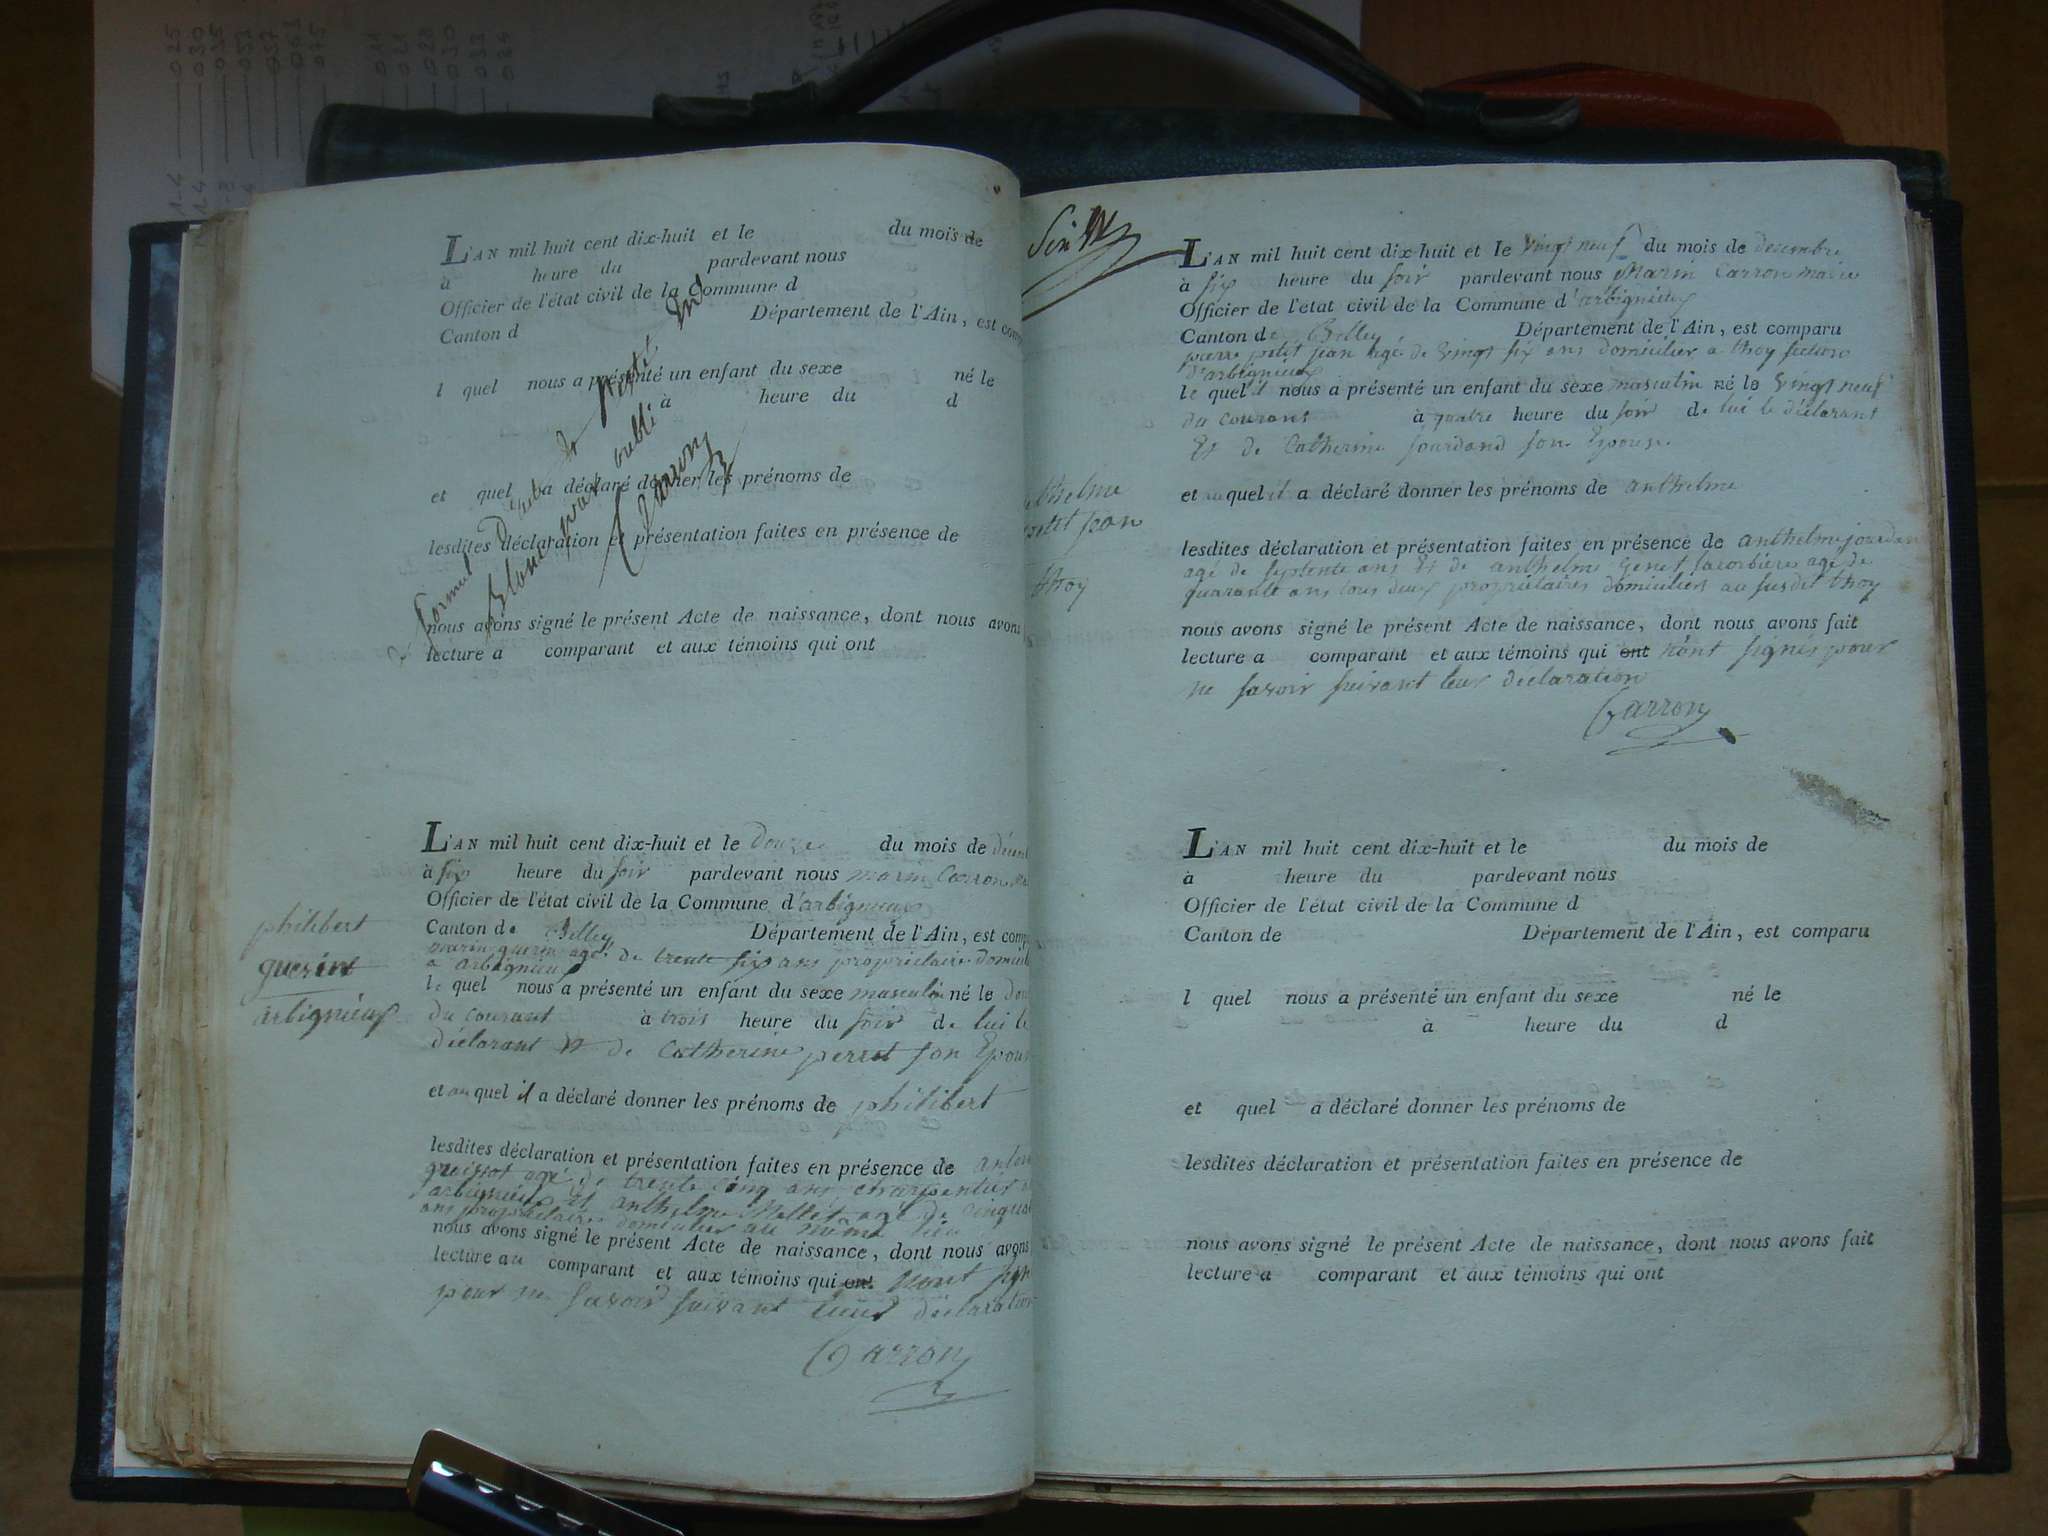 L'AN mil huit cent dix-huit et le du mois de
à heure du pardevant nous
Officier de l'état civil de la Commune d
Canton d Département de l'Ain, est
l quel nous a présenté un enfant du sexe né le
à heure du d
et quel a déclaré donner les prénoms de
lesdites déclaration et présentation faites en présence de
nous avons signé le présent Acte de naissance, dont nous avons
lecture a comparant et aux témoins qui ont
Blanc par oubli
Carron
philibert
guerin
arbignieux
L'AN mil huit cent dix-huit et le Douze du mois de
à six heure du soir pardevant nous marin Carron
Officier de l'état civil de la Commune d'arbignieux
Canton de Belley Département de l'Ain, est
marin guerin agé de trente six ans propriétaire
a arbignieux
le quel nous a présenté un enfant du sexe masculin né le
du courant à trois heure du soir de lui le
déclarant et de Catherine perret son
et au quel il a déclaré donner les prénoms de philibert
lesdites déclaration et présentation faites en présence de
agé de trente cinq ans charpentier
arbignieux et anthelme Millet agé de
ans propriétaires domicilier au même lieu
nous avons signé le présent Acte de naissance, dont nous avons
lecture au comparant et aux témoins qui ont n'ont
pour ne savoir suivant leur déclaration
Carron
anthelme
petit jean
thoy
L'AN mil huit cent dix-huit et le vingt neuf du mois de decembre
à six heure du soir pardevant nous Marin Carron maire
Officier de l'état civil de la Commune d'arbignieux
Canton de Belley Département de l'Ain, est comparu
pierre petit jean agé de vingt six ans domicilier a thoy section
d'arbignieux
le quel il nous a présenté un enfant du sexe masculin né le vingt neuf
du courant à quatre heure du soir de lui le déclarant
Et de Catherine jourdand son Epouse
et au quel il a déclaré donner les prénoms de anthelme
lesdites déclaration et présentation faites en présence de anthelme jourdan
agé de septente ans Et de anthelme Genet agé de
quarante ans tous deux propriétaires domiciliers au susdit thoy
nous avons signé le présent Acte de naissance, dont nous avons fait
lecture a comparant et aux témoins qui ont n'ont signés pour
ne savoir suivant leur declaration
Carron
L'AN mil huit cent dix-huit et le du mois de
à heure du pardevant nous
Officier de l'état civil de la Commune d
Canton de Département de l'Ain, est comparu
l quel nous a présenté un enfant du sexe né le
à heure du d
et quel a déclaré donner les prénoms de
lesdites déclaration et présentation faites en présence de
nous avons signé le présent Acte de naissance, dont nous avons fait
lecture a comparant et aux témoins qui ont